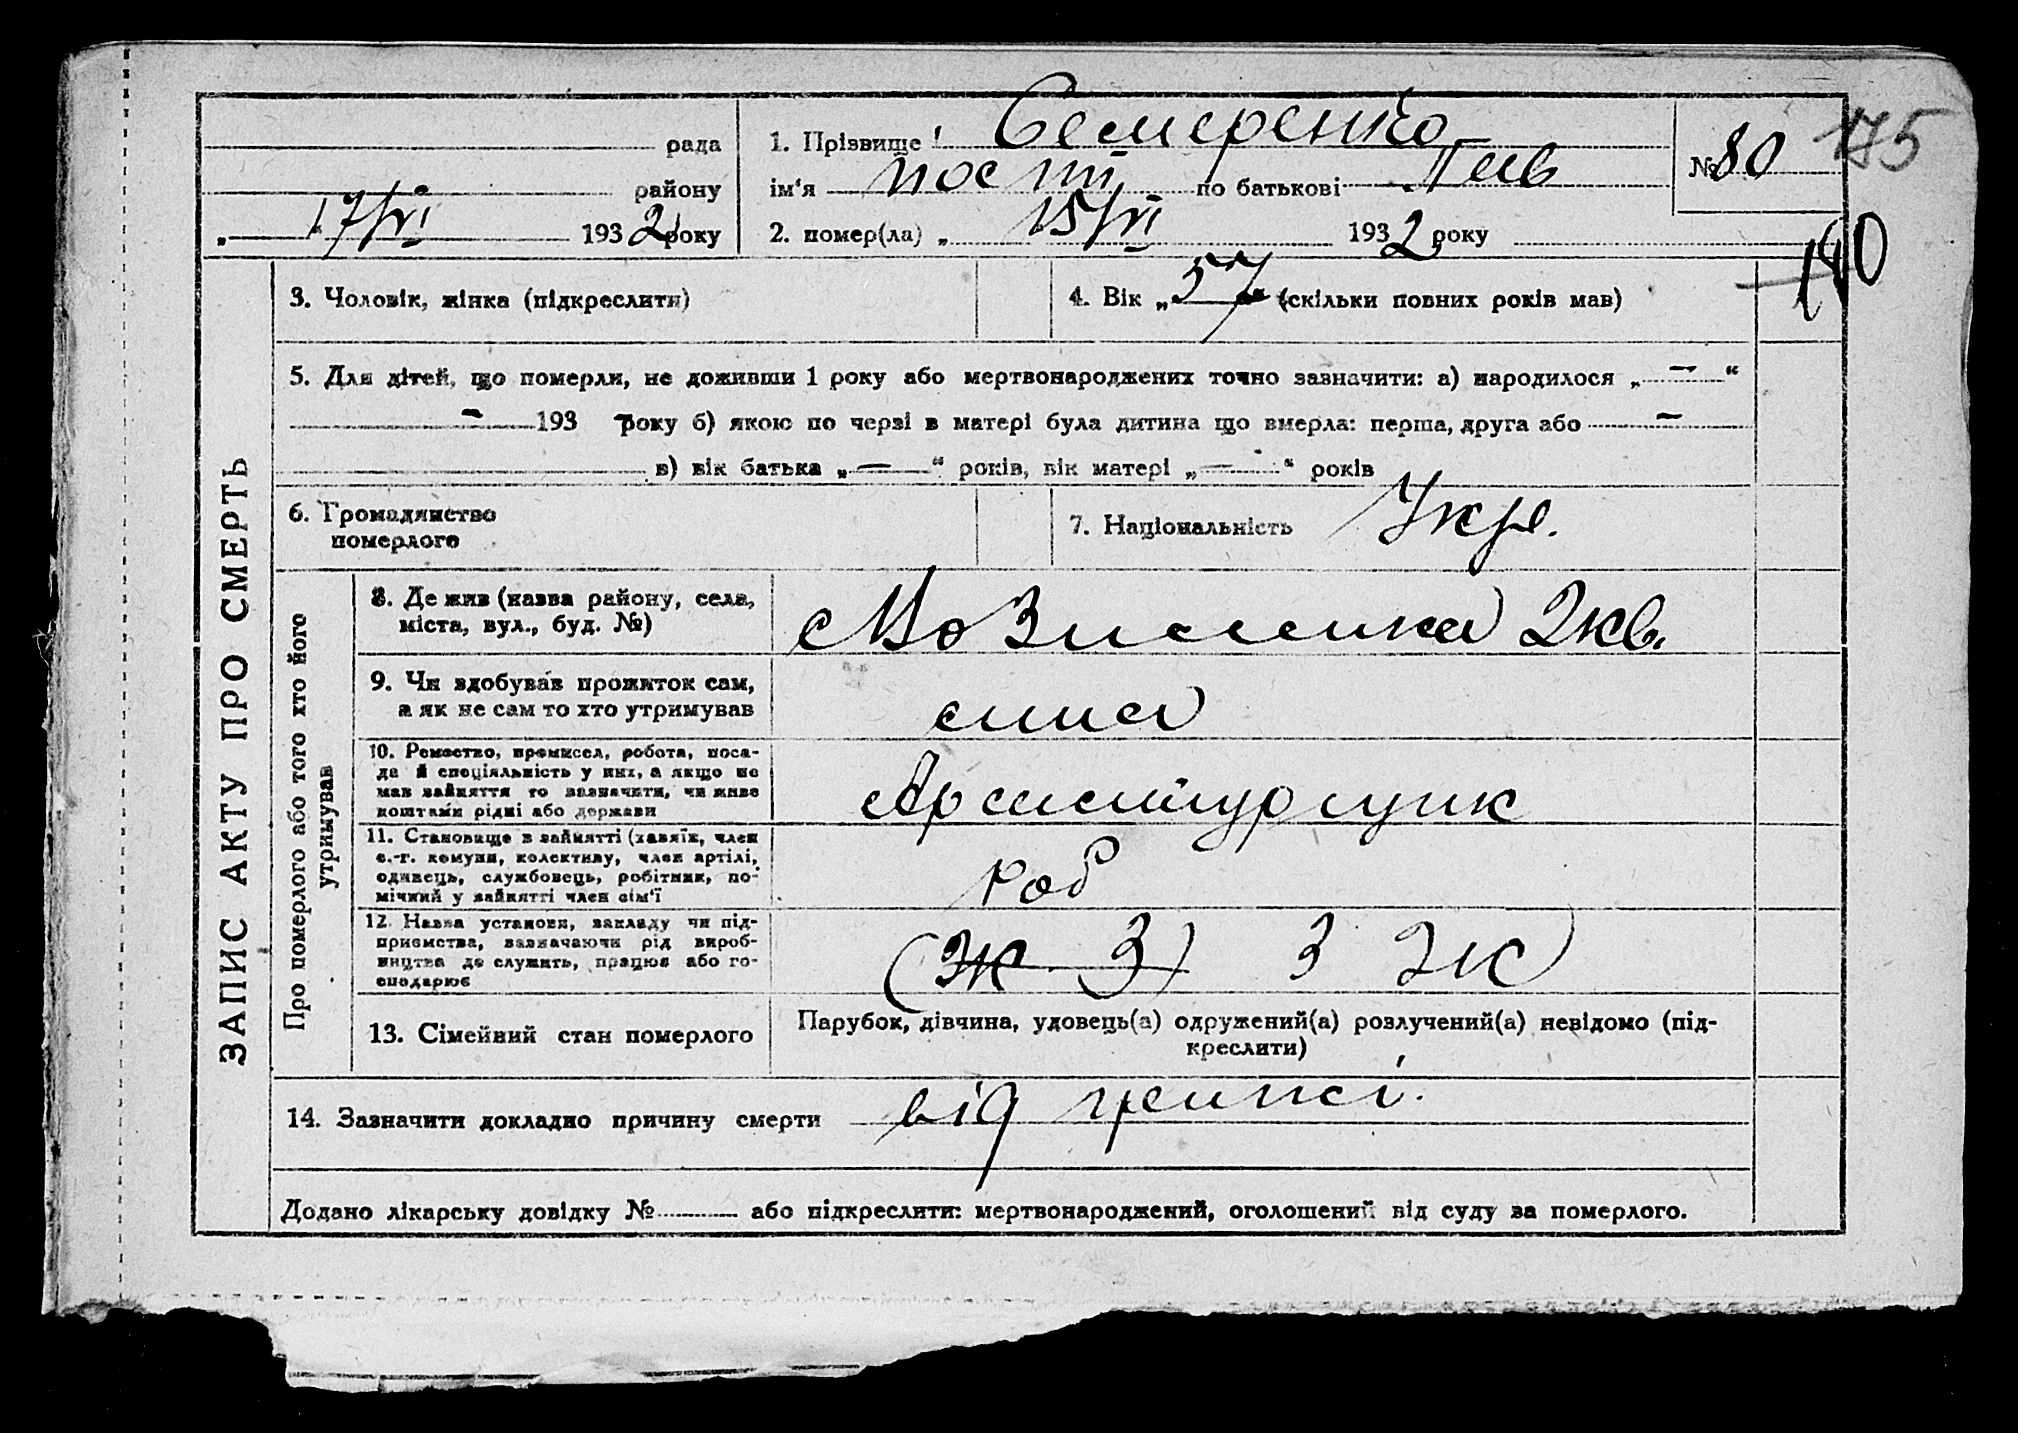 рада
району
„ 17/VI 1932 року
1. Прізвище Семеренко
ім‘я по батькові
2. помер(ла) „ 15/VI 1932 року
№ 80
175
180
ЗАПИС АКТУ ПРО СМЕРТЬ
3. Чоловік, жінка (підкреслити)
4. Вік „57“ (скільки повних років мав)
5. Для дітей, що померли, не доживши 1 року або мертвонароджених точно зазначити: а) народилося „ — “
— 193 — року б) якою по черзі в матері була дитина що вмерла: перша, друга або —
в) вік батька „ — “ років, вік матері „ — “ років
6. Громадянство
померлого
7. Національність Укр.
Про померлого або того хто його
утримував
8. Де жив (назва району, села,
міста, вул., буд. №)
2 кв.
9. Чи здобував прожиток сам,
а як не сам то хто утримував
сина
10. Ремество, промисел, робота, поса-
да й спеціяльність у них, а якщо не
мав зайняття то зазначити, чи живе
коштами рідні або держави
11. Становище в зайнятті (хазяїн, член
с.-г. комуни, колективу, член артілі,
одинець, службовець, робітник, по-
мічний у зайнятті член сім‘ї
роб
12. Назва установи, закладу чи під-
приємства, зазначаючи рід вироб-
ництва де служить, працює або го-
сподарює
13. Сімейний стан померлого
Парубок, дівчина, удовець(а) одружений(а) розлучений(а) невідомо (під-
креслити)
14. Зазначити докладно причину смерти від грипсі.
Додано лікарську довідку № або підкреслити: мертвонароджений, оголошений від суду за померлого.